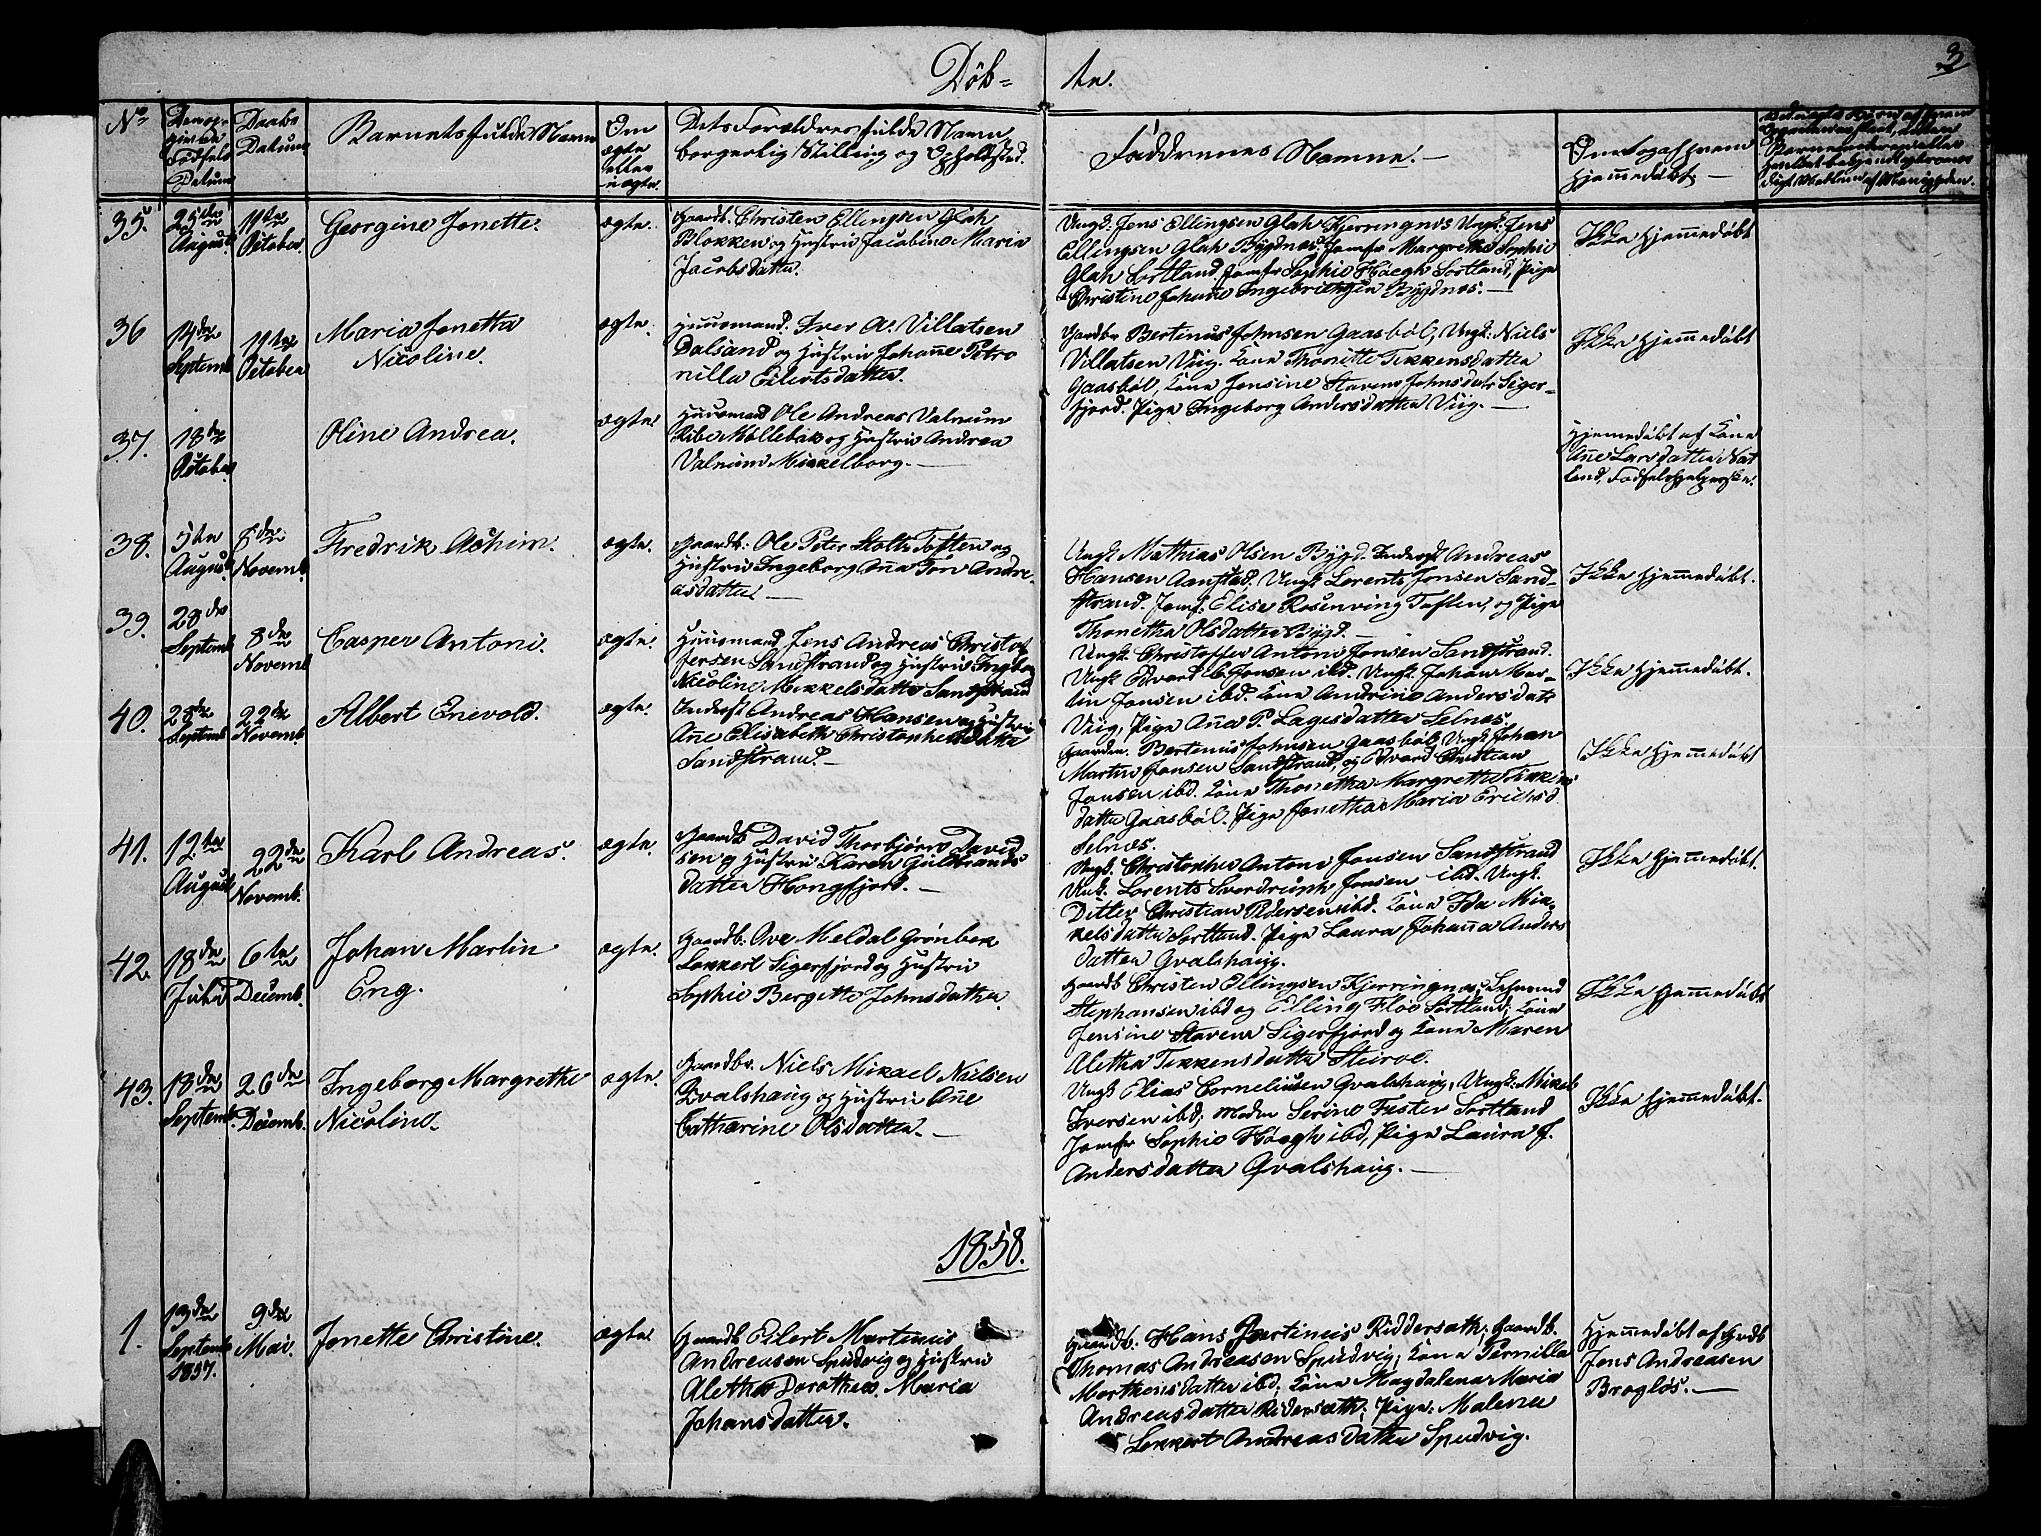 Döb- te.
3
No
Barnets fulde Navn
Om ægte eller uægte.
Dets Forældres fulde Navn, borgerlig Stilling og Opholdssted.
Faddernes Navne.
Om Sogneprem hjemmedöbt
35.
25de August
11te October
Georgine Jonette.
ægte.
Gaardb. Christen Ellingsen Glah
Blokken og Hustru Jacobine Maria
Jacobsdatter.
Ungk. Jens Ellingsen Glah Kjerringnes Ungk. Jens
Ellingsen Glah Bÿgdnes. Jomfr Margrethe Sophie
Glah Sortland, Jomfr Sophie Höegh Sortland, Pige
Christine Johanne Ingebrictsen Bÿgdnes.
Ikke hjemmedöbt
36
14de Septemb
11te October
Maria Jonetta
Nicoline.
ægte.
Huusmand. Iver A. Villatsen
Dalsand og Hustru Johanne Petro
nilla Eilertsdatter.
Gaardbr Bertinus Johnsen Gaasböl, Ungk: Niels
Villatsen Viig. Kone Thonette Tekkensdatter
Gaasböl, Kone Jensine Stavene Johnsdatr Siger-
fjord. Pige Ingeborg Andersdatter Viig.
Ikke hjemmedöbt
37.
18de October
Oline Andrea.
ægte.
Huusmand Ole Andreas Valnum
Ribe Möllebak og Hustru Andrea
Valnum Mikkelborg.
Hjemmedöbt af Kone
Ane Larsdatter Nat
land, Fødselshjelperske.
38.
5te August
8de Novemb.
Fredrik Achim.
ægte.
Gaardb: Ole Peter Holte Toften og
Hustru Ingeborg Anna Tor Andre-
asdatter
Ungk. Mathias Olsen Bÿgd. Inderst Andreas
Hansen Aanstad. Ungk Lorents Jonsen Sand-
strand. Jomf: Elise Rosenving Toften, og Pige
Thonetha Olsdatter Bÿgd.
Ikke hjemmedöbt.
39.
28de Septemb
8de Novemb
Casper Antoni.
ægte.
Huusmand Jens Andreas Christof
fersen Sandstrand og Hustru Ingeborg
Nicoline Mikkelsdatter Sandstrand
Ungk. Christoffer Anton Jonsen Sandstrand.
Ungk Edvard C. Jonsen ibd. Ungk. Johan Mar-
tin Jonsen ibd. Kone Andrine Andersdatr
Viig, Pige Anna P. Lagesdatter Selnes.
Ikke hjemmedöbt.
40.
28de Septemb
22de Novemb.
Albert Enevold.
ægte.
Inderst Andreas Hansen og Hustru
Ane Elisabeth Christophersdatter
Sandstrand.
Gaardbr. Bertinus Johnsen Gaasböl, Ungk Johan
Martin Jonsen Sandstrand, og Edvard Christian
Jonsen ibd. Kone Thonetha Margrethe Tekkens
datter Gaasböl. Pige Jonetha Maria Erichsd
Selnes.
Ikke hjemmedöbt
41.
12te August
22de Novemb.
Karl Andreas.
ægte.
Gaardb David Thorbjörn David
sen og Hustru Karen Guldbrands
datter Hongfjord.
Ungk. Christopher Anton Jonsen Sandstrand
Ungk. Lorents Sverdruph Jonsen ibd. Ungk.
Ditlev Christian Pedersen ibd. Kone Ida Mik-
kelsdatter Sortland. Pige Laura Johanna Anders
datter Qvalshaug.
Ikke hjemmedöbt.
42.
18de
6te Decemb.
Johan Martin
Eng.
ægte.
Gaardb: Ove Meldal Grönbeck
Lokkert Sigerfjord og Hustru
Sophie Bergette Johnsdatter.
Gaardb Christen Ellingsen Kjerringnes,
Stephansen ibd og Elling Floe Sortland; Kone
Jensine Stavene Sigerfjord og Kone Maren
Aletha Tekkensdatter Steiroe.
Ikke hjemmedöbt
43.
18de Septemb.
26de Decemb.
Ingeborg Margrethe
Nicoline.
ægte.
Gaardbr. Niels Mikael Nielsen
Qvalshaug og Hustru Ane
Catharine Olsdatter.
Ungk Elias Corneliusen Qvalshaug, Ungk: Mikal
Iversen ibd; Madm Serine Fester Sortland
Jomfr Sophie Höegh ibd, Pige Laura J.
Andersdatter Qvalshaug.
Ikke hjemmedöbt.
1858.
1.
13de Septemb 1857.
9de Mai.
Jonette Christine.
ægte.
Gaardb Eilert Martinus
Andreasen Spudvig og Hustru
Aletha Dorothea Maria
Johansdatter.
Gaardb: Hans Bertineus Riddersath; Gaardb.
Thomas Andreasen Spudvig, Kone Pernilla
Morthensdatter ibd; Kone Magdalena Maria
Andreasdatter Ridersath; Pige: Malena
Lokkert Andreasdatter Spudvig.
Hjemmedöbt af Grdb
Jens Andreasen
Braglös.